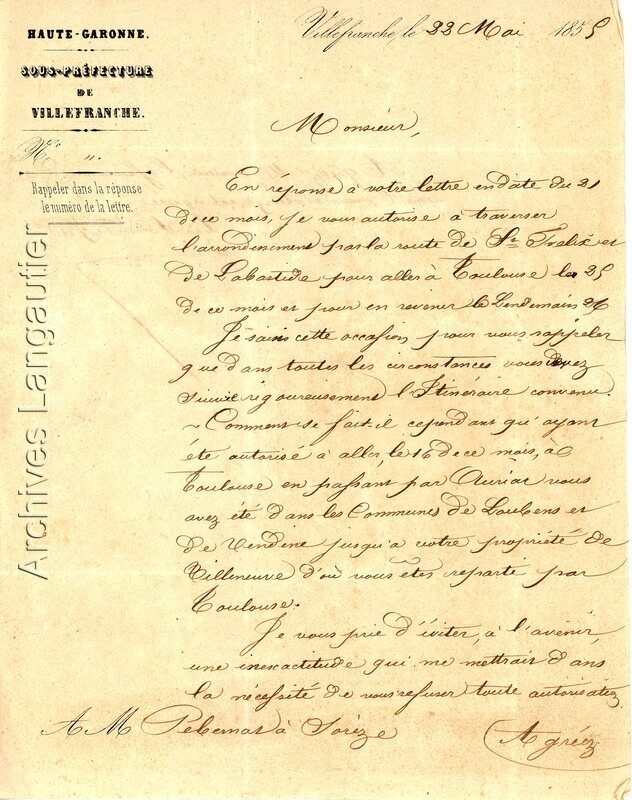 HAUTE-GARONNE.
SOUS-PRÉFECTURE
DE
VILLEFRANCHE.
N.° "
Rappeler dans la réponse
le numéro de la lettre.
Villefranche, le 22 Mai 1855
Monsieur,
En réponse à votre lettre en date du 21
de ce mois, je vous autorise à traverser
l'arrondissement par la route de St. Foelix et
de Labastide pour aller à Toulouse le 25
de ce mois et pour en revenir le Lendemain 26
Je saisis cette occasion pour vous rappeler
que dans toutes les circonstances vous devez
suivre rigoureusement l'Itinéraire convenu.
~ Comment se fait-il cependant qu'ayant
été autorisé à aller, le 16 de ce mois, à
Toulouse en passant par Auriac vous
avez été dans les Communes de Loubens et
de Vendine jusqu'à votre propriété de
Villeneuve d'où vous êtes reparti par
Toulouse.
Je vous prie d'éviter, à l'avenir,
une inexactitude qui me mettrait dans
la nécessité de vous refuser toute autorisation
A M Pebernat à Sorèze
Agréez
Archives Langautier